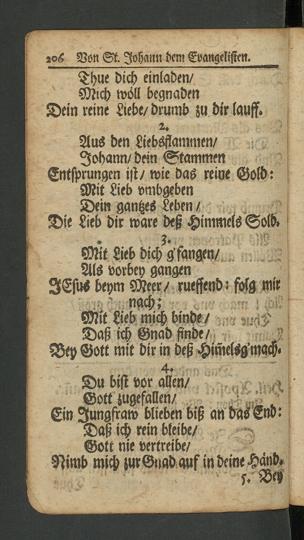 206 Von St. Johann dem Evangelisten.
Thue dich einladen/
Mich wöll begnaden
Dein reine Liebe/ drumb zu dir lauff.
2.
Aus den Liebsflammen/
Johann/ dein Stammen
Entsprungen ist/ wie das reine Gold:
Mit Lieb vmbgeben
Dein gantzes Leben/
Die Lieb dir ware deß Himmels Sold.
3.
Mit Lieb dich g'fangen/
Als vorbey gangen
JEsus beym Meer/ rueffend: folg mir
nach;
Mit Lieb mich binde/
Daß ich Gnad finde/
Bey Gott mit dir in deß Him̃elsg'mach.
4.
Du bist vor allen/
Gott zugefallen/
Ein Jungfraw blieben biß an das End:
Daß ich rein bleibe/
Gott nie vertreibe/
Nimb mich zur Gnad auf in deine Händ.
5. Bey